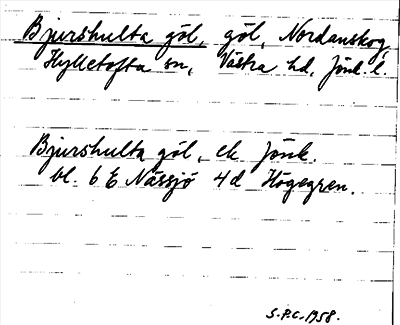 Bjurshulta göl, göl, Nordanskog
Hylletofta sn, Västra hd, Jönk. l.
Bjurshulta göl, ek Jönk.
bl. 6 E Nässjö 4d Högegren.
S.P.C. 1958.